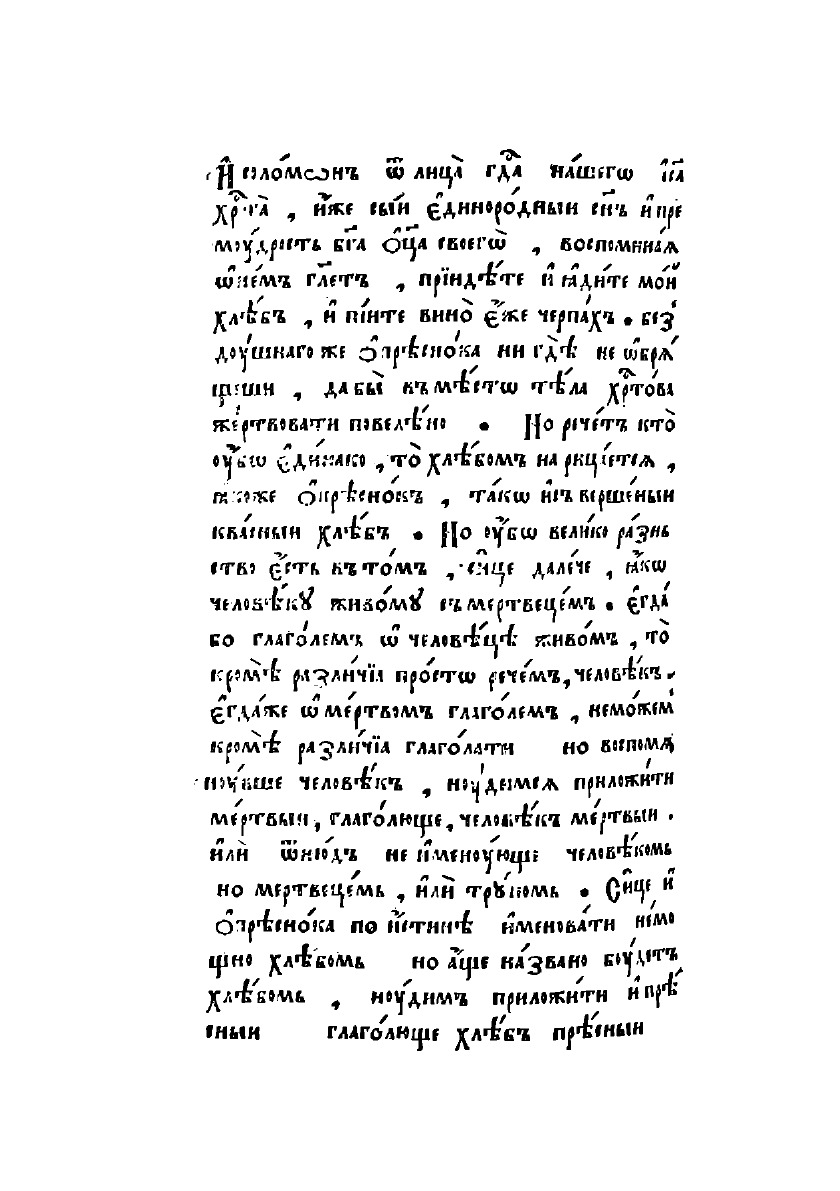 И҆ соло́мѡнъ ѿ лица̀ гдⷭ҇а на́шегѡ і҆с҃а
хрⷭ҇та̀ , и҆́же сы́й є҆диноро́дныи сн҃ъ и҆ пре
моу́дрость бг҃а ѻ҆ц҃а своегѡ̀ , воспомина́ѧ
ѡ҆ не́мъ гл҃етъ , прїидѣ́те и҆ ꙗ҆ди́те мо́й
хлѣ́бъ , и҆ пі́ите вино̀ є҆́же черпа́хъ . без
доу́шнаго же ѻ҆прѣсно́ка ни гдѣ̀ не ѡ҆брѧ́
щеши , да бы̀ въ мѣ́стѡ тѣ́ла хрⷭ҇то́ва
же́ртвовати повелѣ́но . Но рече́тъ кто̀
оу҆́бѡ є҆ди́нако , то̀ хлѣ́бомъ нарицае́тсѧ ,
ꙗкоже ѻ҆прѣсно́къ , та́кѡ и҆ съверше́ныи
ква́сныи хлѣ́бъ . Но оу҆́бѡ вели́ко ра́знь
ство є҆́сть въ то́мъ , си́це дале́че , ꙗ҆́кѡ
человѣ́кꙋ живо́мꙋ съ мертвеце́мъ . є҆гда́
бо глаго́лемъ ѡ҆ человѣ́цѣ живо́мъ , то̀
кромѣ̀ разли́чїѧ про́стѡ рече́мъ, человѣ́къ .
є҆гда́же ѡ҆ ме́ртвомъ глаго́лемъ , немо́жем
кромѣ̀ разли́чїа глаго́лати но воспомѧ
ноу́вше человѣ́къ , ноу́димсѧ приложи́ти
ме́ртвыи, глаго́люще, человѣ́къ ме́ртвыи .
и҆лѝ ѿню́дъ не и҆меноу́юще человѣ́комь
но мертвеце́мь , и҆лѝ трꙋ́помь . Си́це и҆
ѻ҆прѣсно́ка по и҆́стинѣ и҆менова́ти не́мо
щно хлѣ́бомь но а҆́ще на́звано боу́детъ
хлѣ́бомь , ноу́димъ приложи́ти и҆ прѣ́
сныи глаго́люще хлѣ́бъ прѣ́сныи